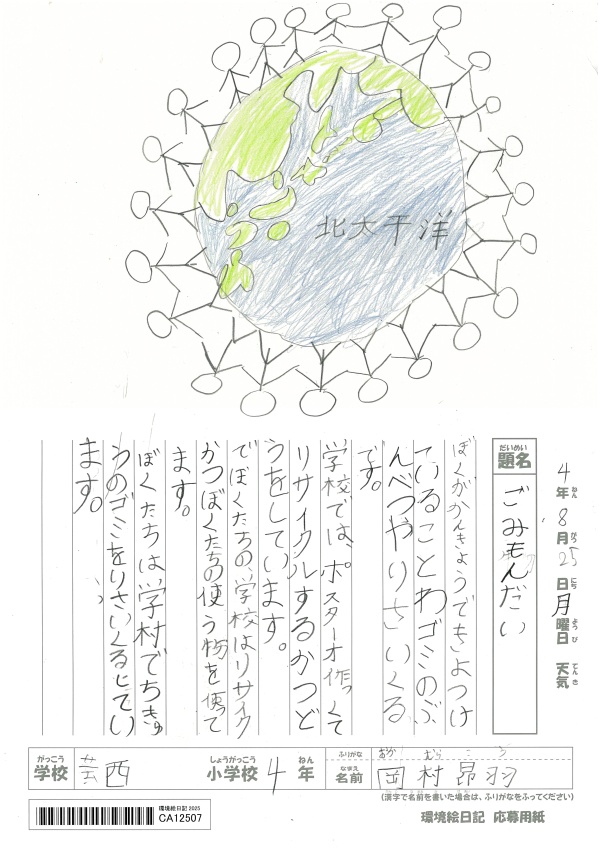 北太平洋
4年 8月 25日 月曜日 天気
ねん がつ にち ようび てんき
だいめい
題名
ごみもんだい
ぼくがかんきょうできよつけ
ていることわゴミのぶ
んべつやりさいくる
です。
学校では、ポスターオ作って
リサイクルするかつど
うをしています。
でぼくたちの学校はリサイク
かつぼくたちの使う物を使って
ます。
ぼくたちは学村でちきゅ
うのゴミをりさいくるしてい
ます。
がっこう
学校 芸西
しょうがっこう ねん
小学校 4年
ふりがな おか むら
なまえ
名前 岡村昂羽
(漢字で名前を書いた場合は、ふりがなをふってください)
環境絵日記 2025
CA12507
環境絵日記 応募用紙